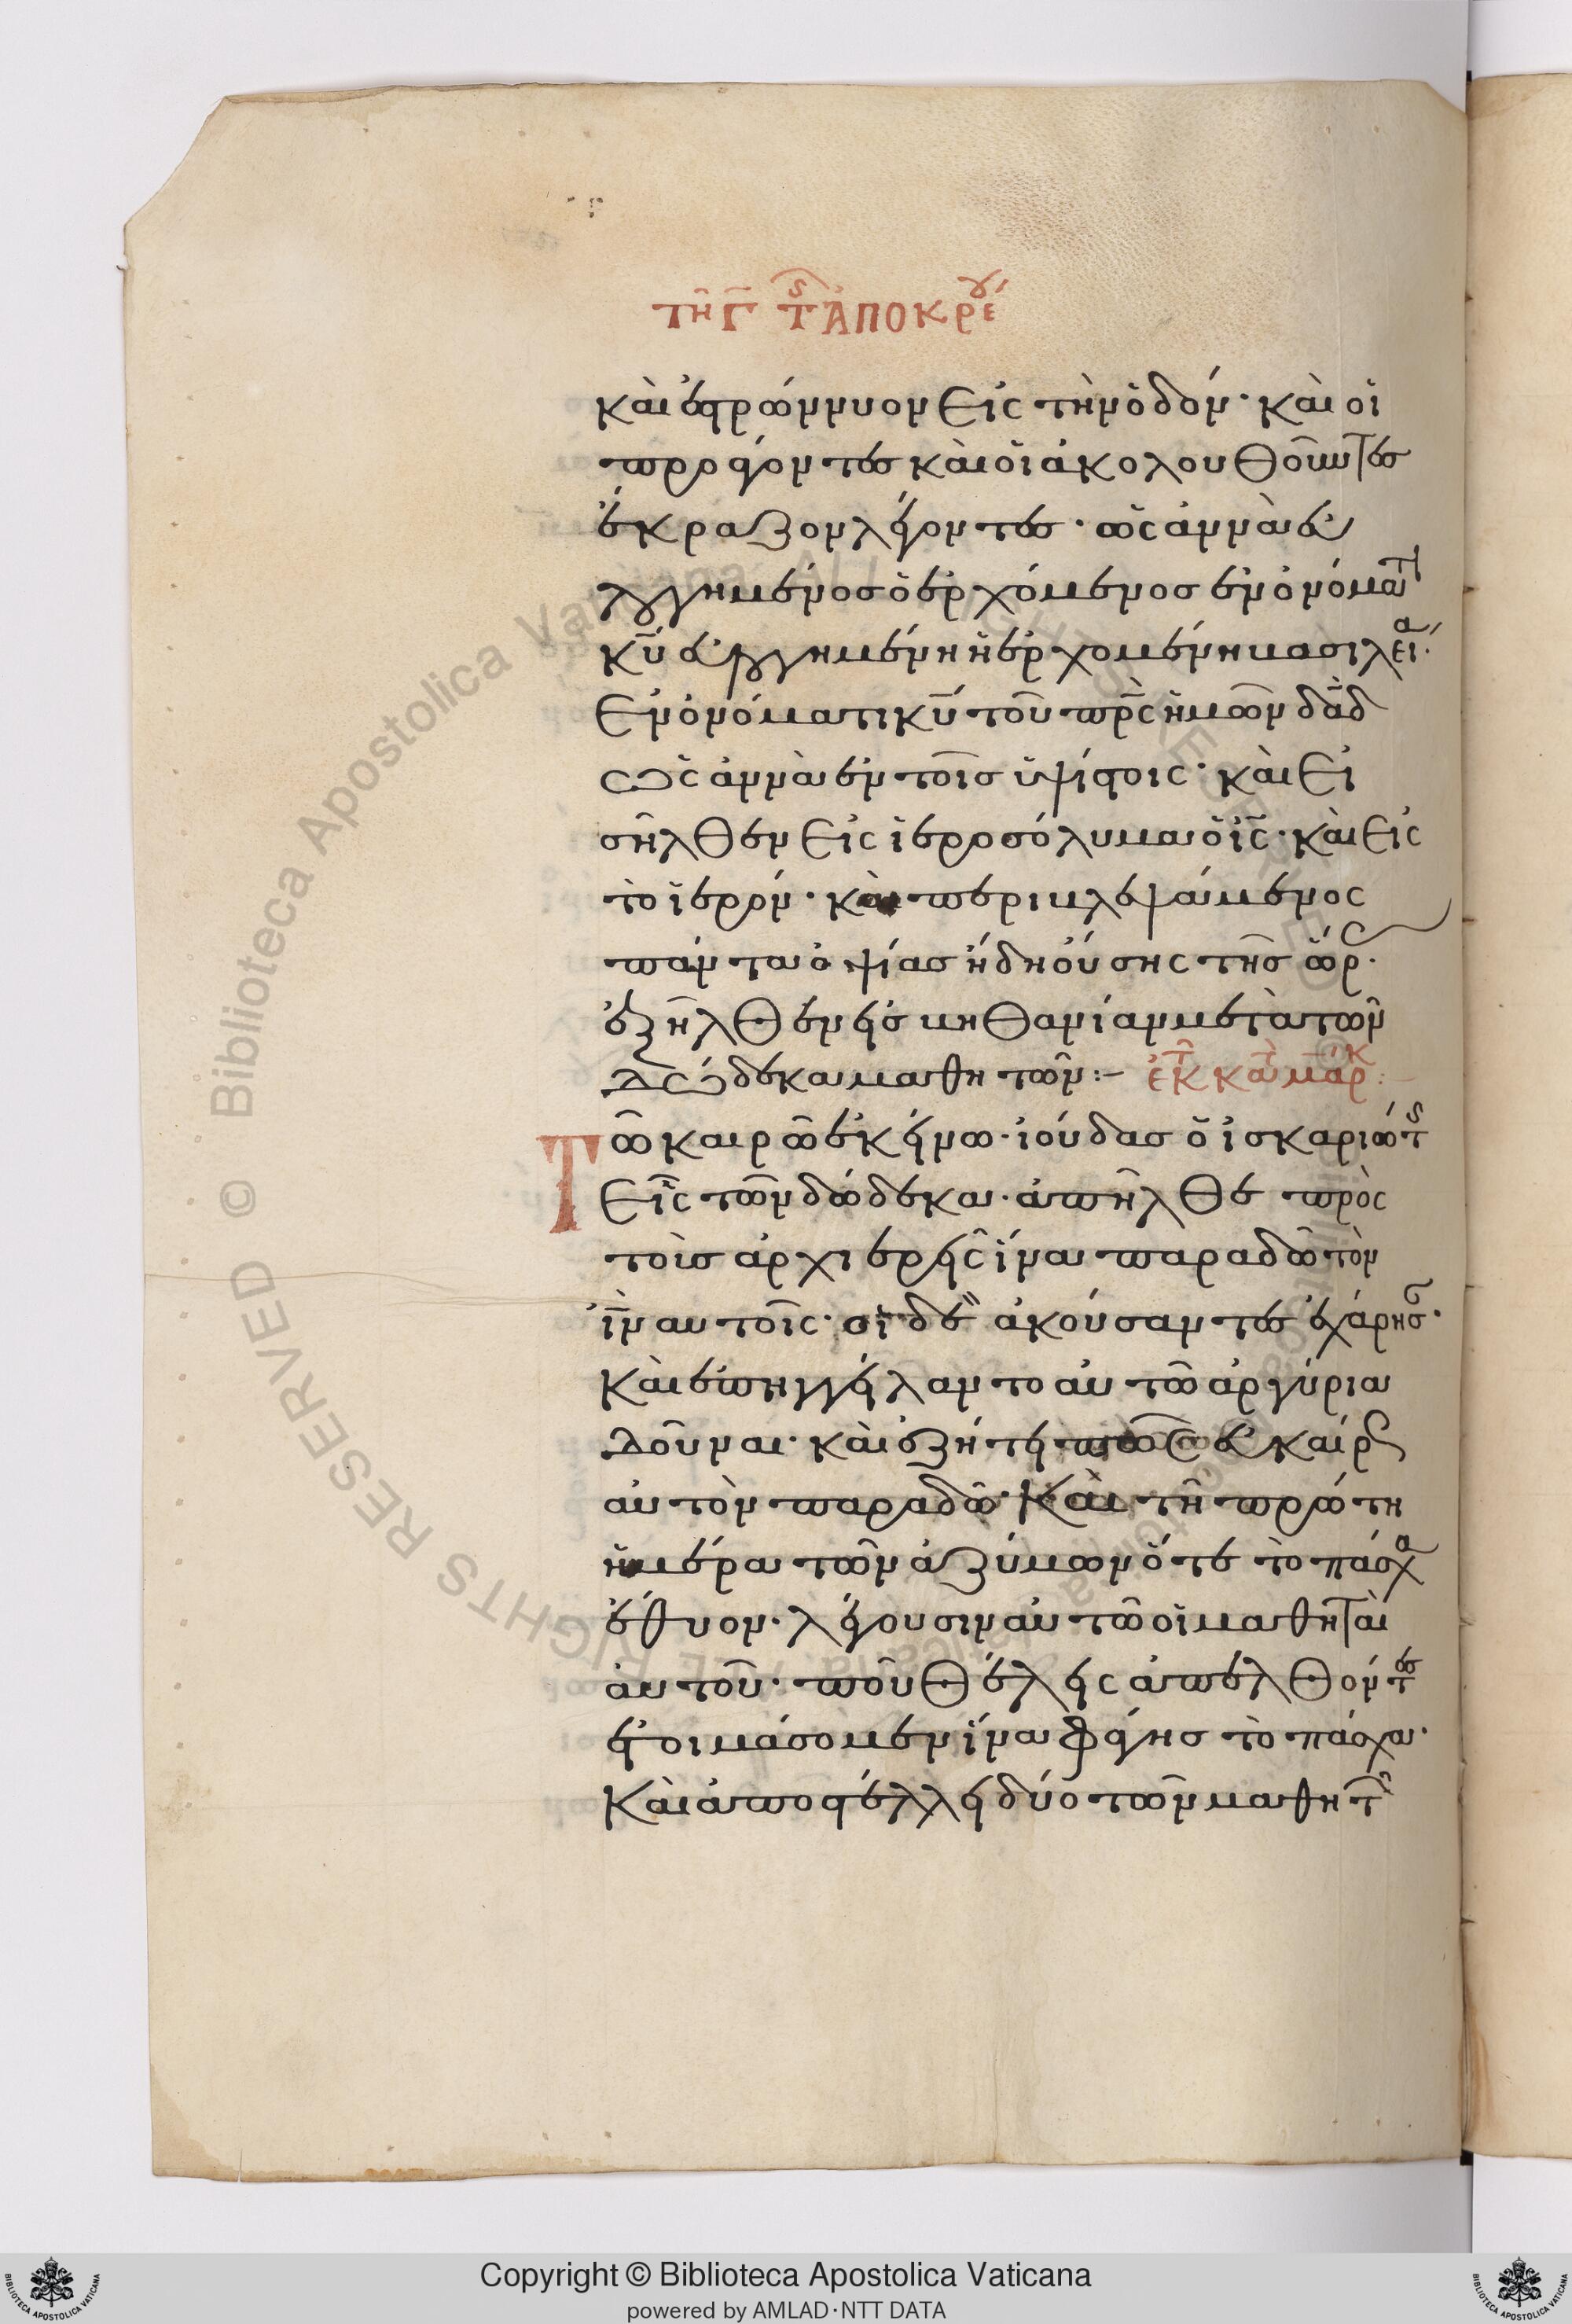 τῆ Γ τῆς ἀποκρέου
καὶ ἐστρώννυον εἰς τὴν ὁδόν· καὶ οἱ
προάγοντες καὶ οἱ ἀκολουθοῦντες
ἔκραζον λέγοντες· ὡς ἀννὰ εὐ
λογημένος ὁ ἐρχόμενος ἐν ὀνόματι
κ̅υ̅ εὐλογημένη ἡ ἐρχομένη βασιλεία·
ἐν ὀνόματι κ̅υ̅ τοῦ π̅ρ̅ς̅ ἡμῶν δ̅α̅δ̅
ὡς ἀννὰ ἐν τοῖς ὑψίστοις· καὶ εἰ
σῆλθεν εἰς ἱεροσόλυμα ὁ ι̅ς̅· καὶ εἰς
τὸ ἱερόν· καὶ περιβλεψάμενος
πάντα ὀψίας ἤδη οὔσης τῆς ὥρας·
ἐξῆλθεν εἰς βηθανίαν μετὰ τῶν
δώδεκα μαθητῶν:– ἐκ τ κατ μάρκ:–
Τῶ καιρῶ ἐκείνω· ἰούδας ὁ ἰσκαριώτης
εἷς τῶν δώδεκα· ἀπῆλθε πρὸς
τοὺς ἀρχιερεῖς ἵνα παραδῶ τὸν
ι̅ν̅ αυτοῖς· οἱ δὲ ἀκούσαντες ἐχάρησαν·
καὶ ἐπηγγείλαντο αὐτῶ ἀργύρια
δοῦναι· καὶ ἐζήτει πῶς εὐκαίρως
αὐτὸν παραδῶ· καὶ τῆ πρώτη
ἡμέρα τῶν ἀζύμων ὅτε τὸ πάσχα
ἔθυον· λέγουσιν αὐτῶ οἱ μαθηταὶ
αὐτοῦ· ποῦ θέλεις ἀπελθόντες
ἑτοιμάσομεν ἵνα φάγης τὸ πάσχα·
καὶ ἀποστέλλει δύο τῶν μαθητῶν
Copyright © Biblioteca Apostolica Vaticana
powered by AMLAD·NTT DATA